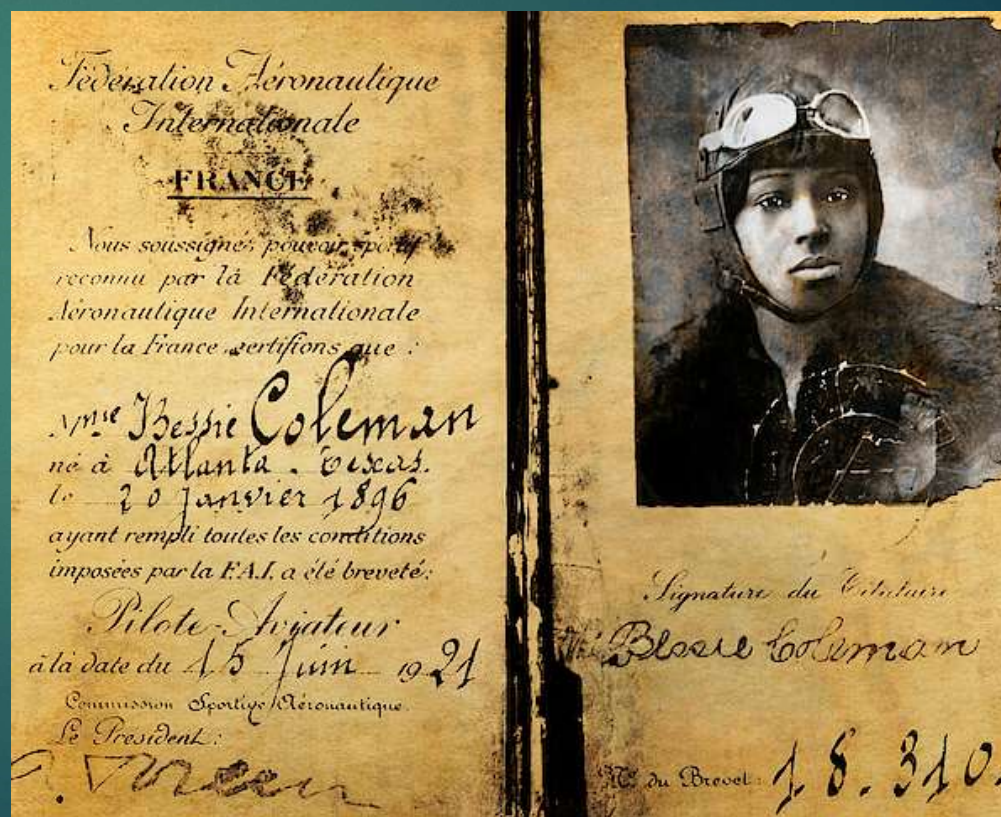 Fédération Aéronautique
Internationale
FRANCE
Nous soussignés pouvoir sportif
reconnu par la Fédération
Aéronautique Internationale
pour la France certifions que :
Mme Bessie Coleman
né à Atlanta. Texas.
le 20 Janvier 1896
ayant rempli toutes les conditions
imposées par la F.A.I. a été breveté:
Pilote-Aviateur
à la date du 15 Juin 1921
Commission Sportive Aéronautique.
Le President:
Signature du Titulaire
Bessie Coleman
No du Brevet: 18.310.